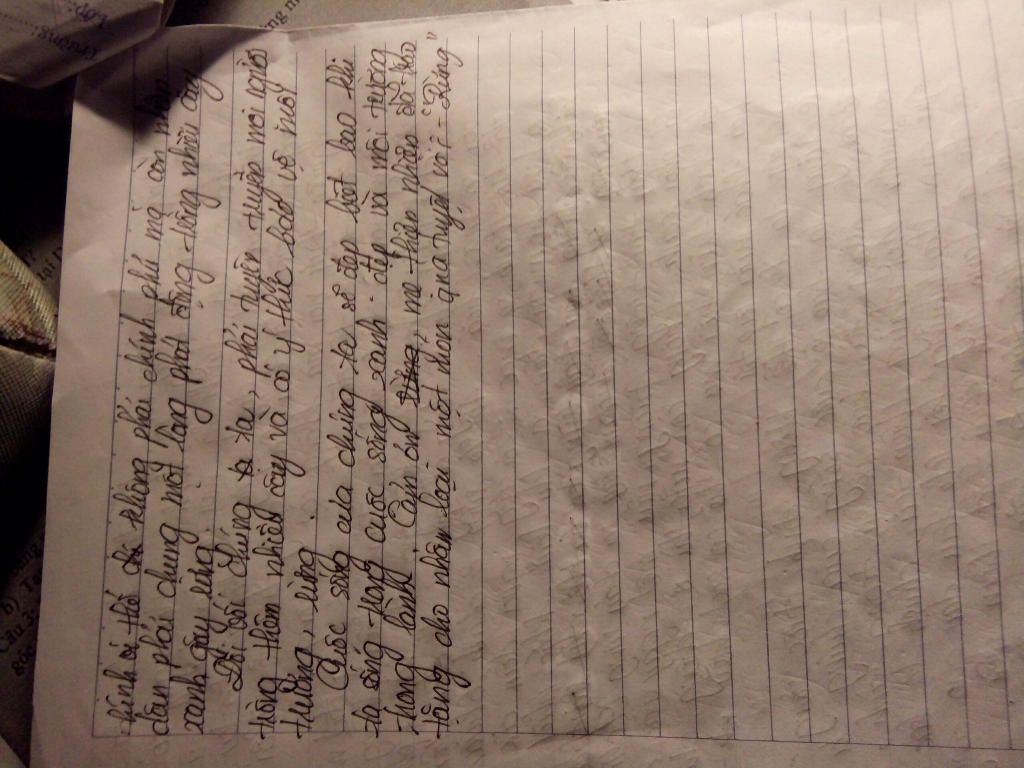 chính vì thế không phải chính phủ mà còn nhân
dân phải chung một lòng phát động trồng nhiều cây
xanh gây rừng
Đối với chúng ta, phải tuyên truyền mọi người
trồng thêm nhiều cây và có ý thức bảo vệ môi
trường, rừng.
Cuộc sống của chúng ta sẽ đẹp biết bao khi
ta sống trong cuộc sống xanh - đẹp và môi trường
trong lành. Cảm ơn mẹ thiên nhiên đã trao
tặng cho nhân loại một món quà tuyệt vời - "Rừng"
Trường:
Lớp:
b)
Câu 3: